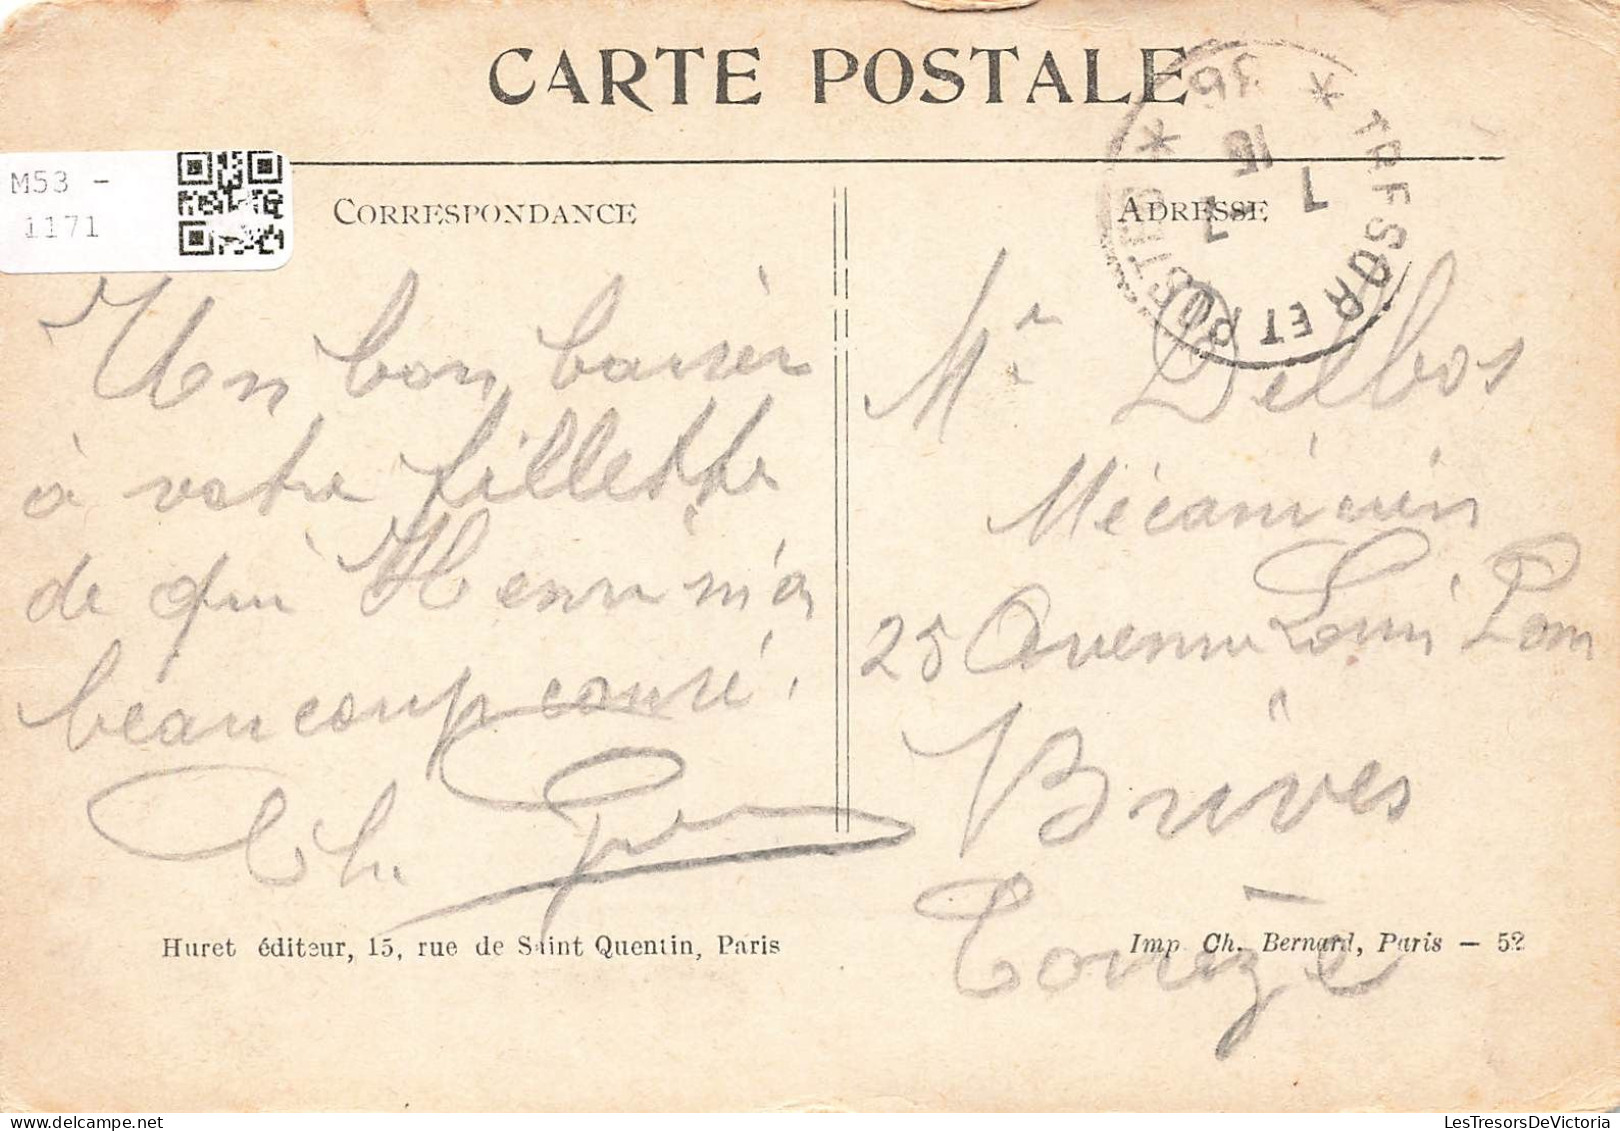 CARTE POSTALE
M53 -
1171
CORRESPONDANCE
ADRESSE
* TRESOR ET POSTES *
36
15
7 7
Un bon baiser
à votre fillette
de qui Henri m'a
beaucoup causé.
Ch.
Mr Delbos
Mécanicien
25 Avenue Louis Pons
Brives
Corrèze
Huret éditeur, 15, rue de Saint Quentin, Paris
Imp. Ch. Bernard, Paris — 52
LesTresorsDeVictoria